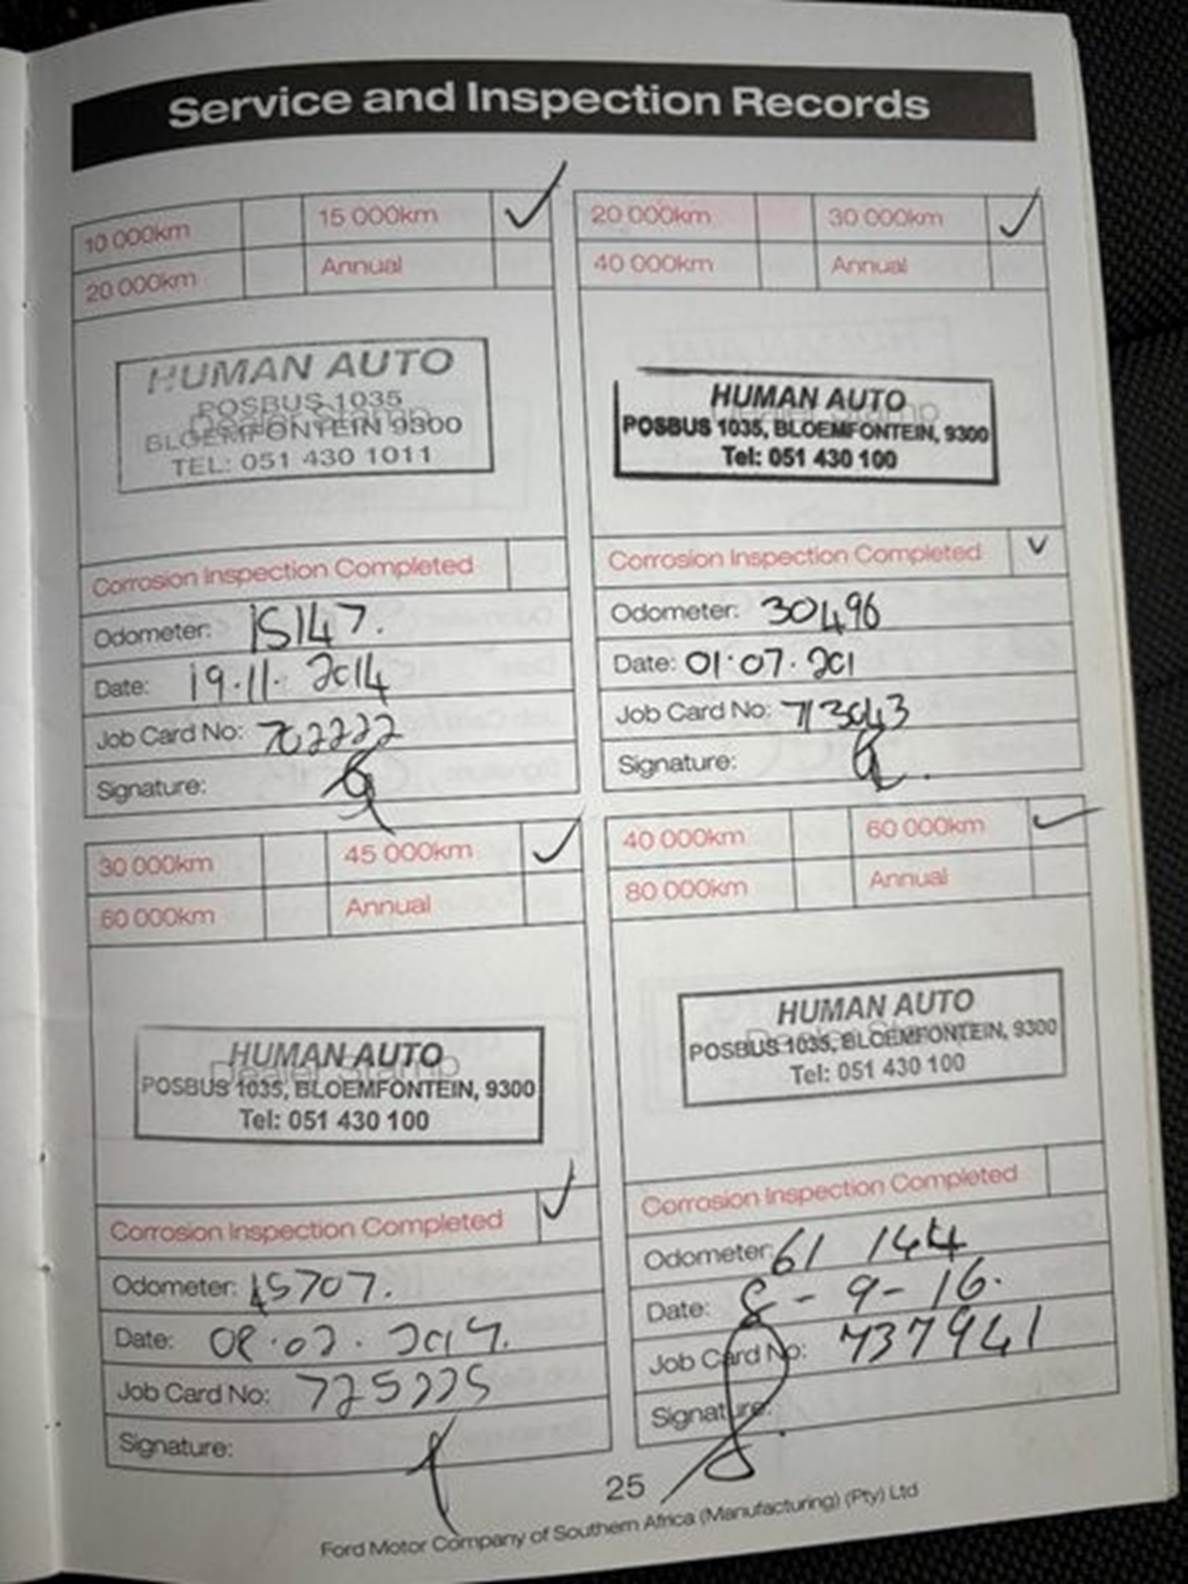 Service and Inspection Records
10 000km 15 000km ✓
20 000km Annual
HUMAN AUTO
POSBUS 1035
BLOEMFONTEIN 9300
TEL: 051 430 1011
Corrosion Inspection Completed
Odometer: 15147.
Date: 19.11.2014
Job Card No: 702222
Signature:
20 000km 30 000km ✓
40 000km Annual
HUMAN AUTO
POSBUS 1035, BLOEMFONTEIN, 9300
Tel: 051 430 100
Corrosion Inspection Completed ✓
Odometer: 30496
Date: 01.07.201
Job Card No: 713043
Signature:
30 000km 45 000km ✓
60 000km Annual
HUMAN AUTO
POSBUS 1035, BLOEMFONTEIN, 9300
Tel: 051 430 100
Corrosion Inspection Completed ✓
Odometer: 45707.
Date:
Job Card No: 725225
Signature:
40 000km 60 000km ✓
80 000km Annual
HUMAN AUTO
POSBUS 1035, BLOEMFONTEIN, 9300
Tel: 051 430 100
Corrosion Inspection Completed
Odometer: 61 144
Date: 8-9-16.
Job Card No: 737941
Signature:
25
Ford Motor Company of Southern Africa (Manufacturing) (Pty) Ltd